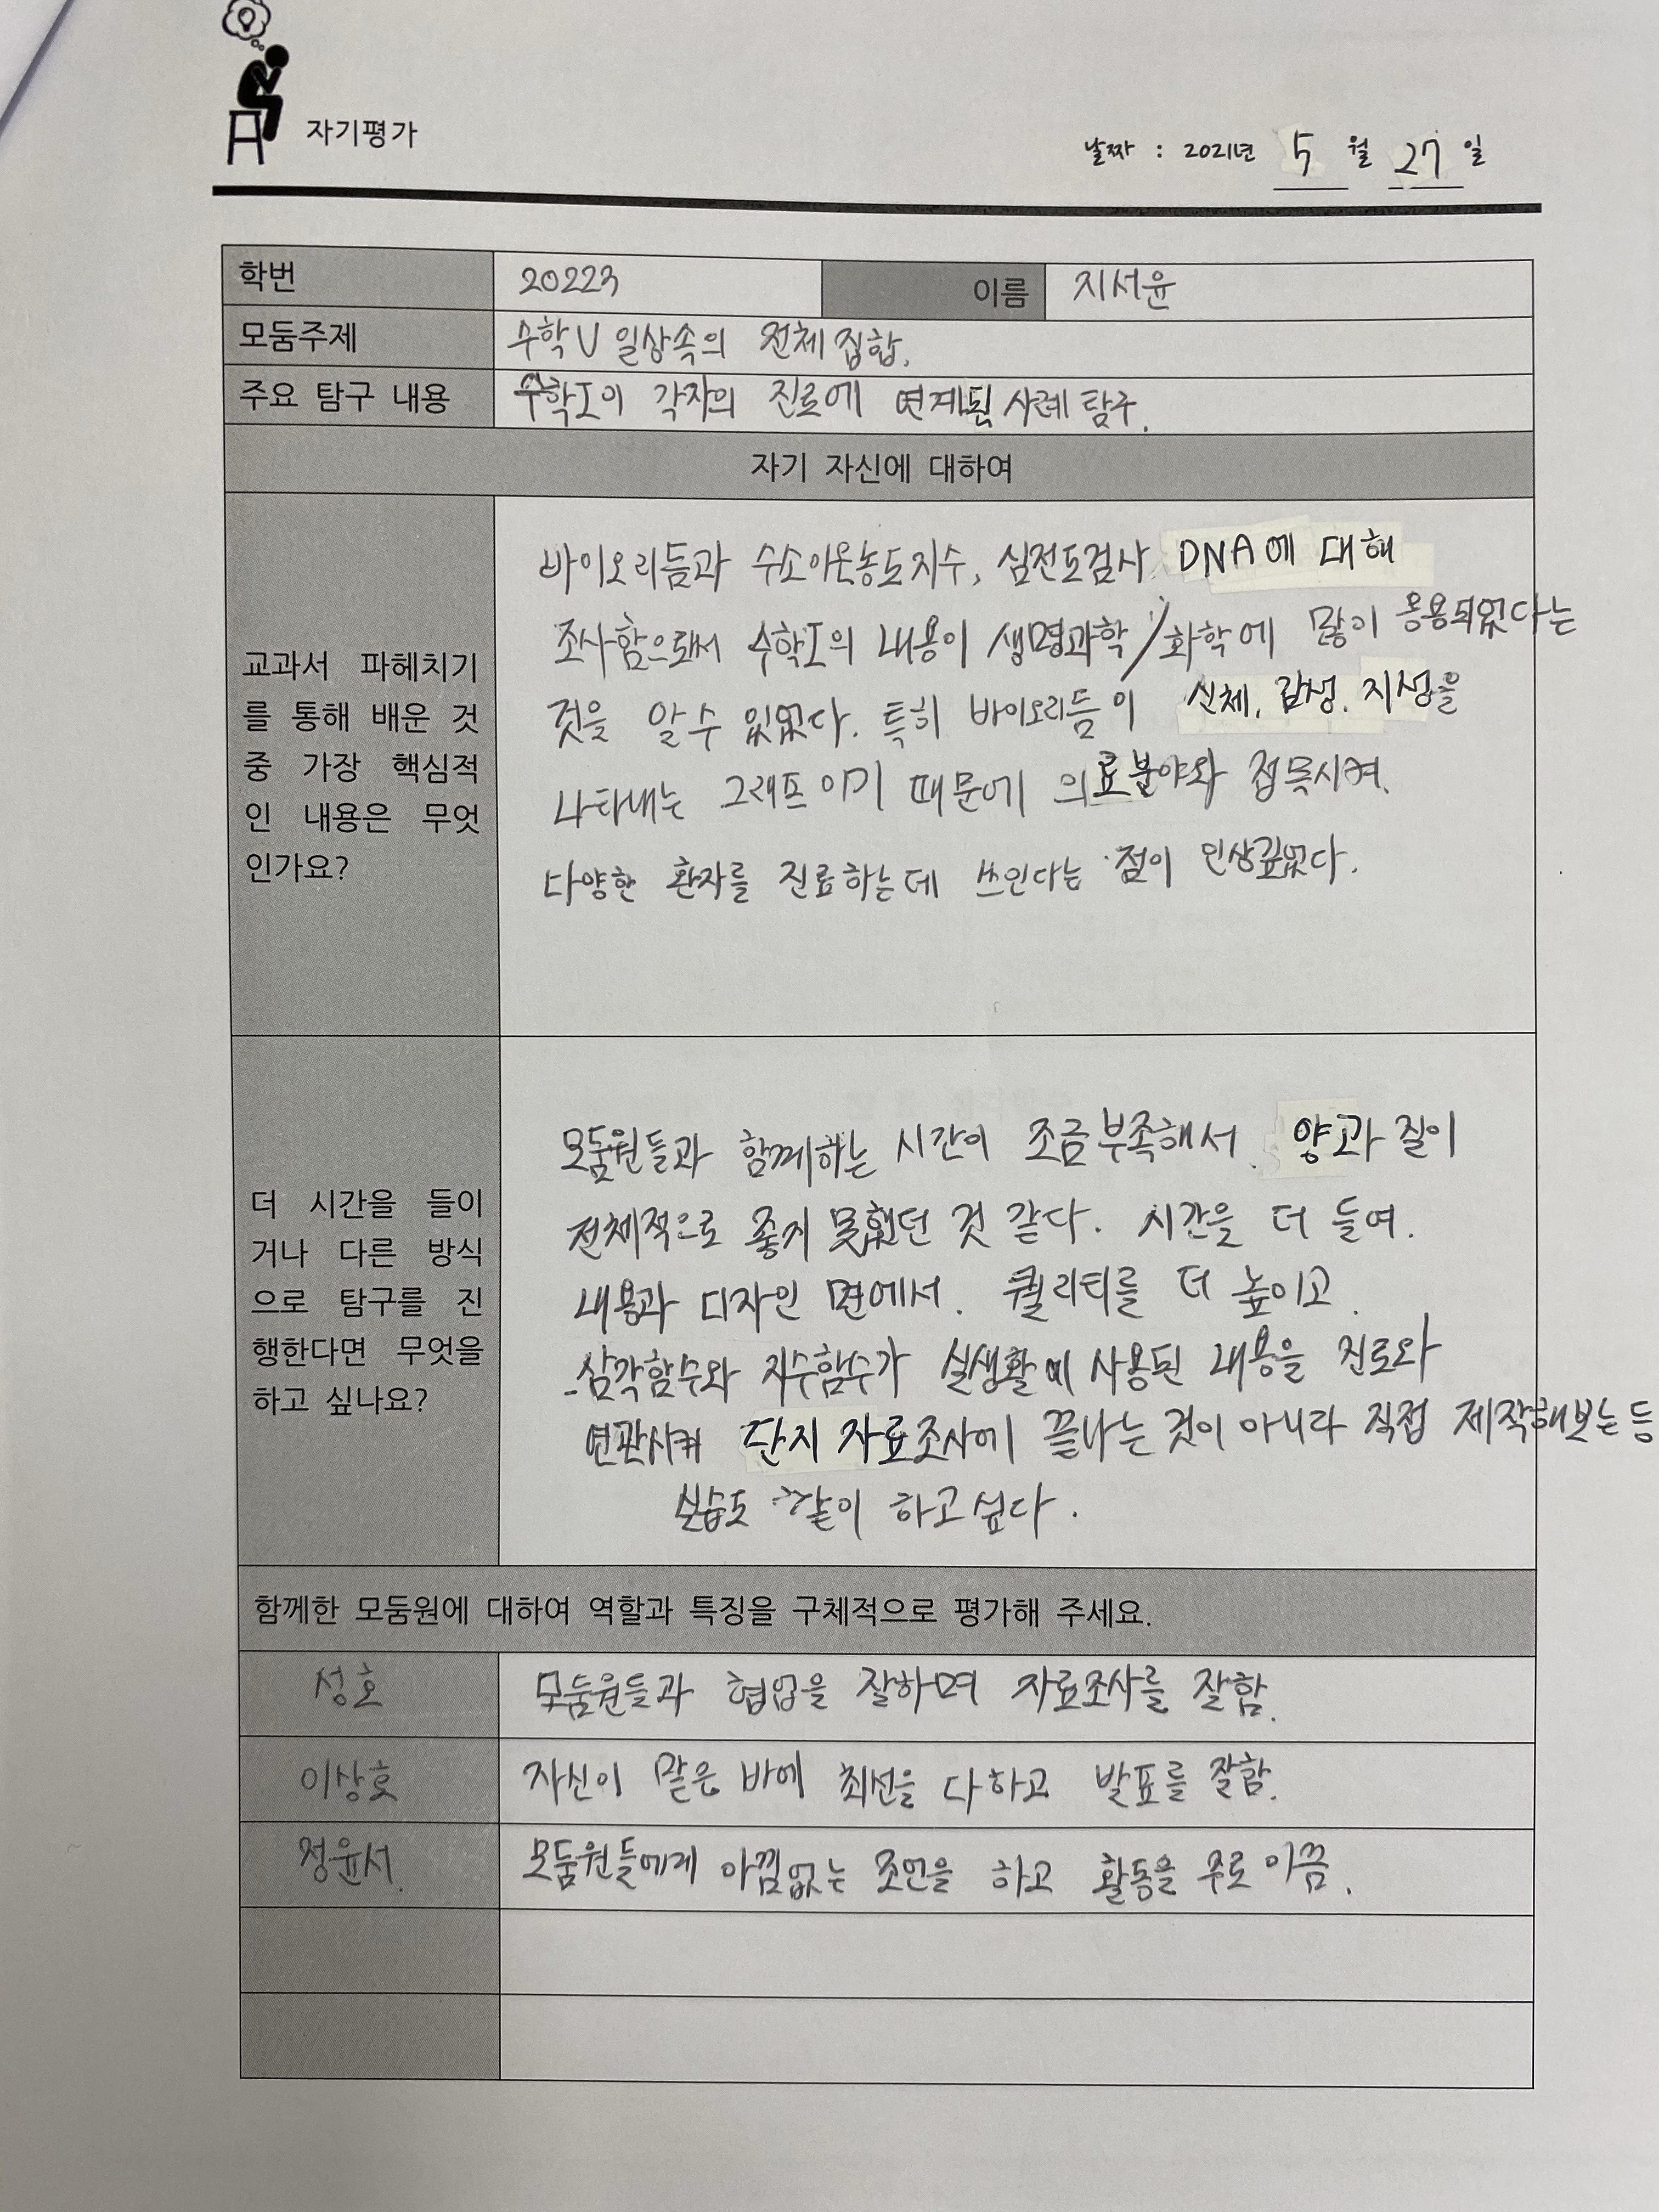 자기평가
날짜 : 2021년 5 월 27 일
학번 20223 이름 지서윤
모둠주제 수학 U 일상속의 전체집합.
주요 탐구 내용 수학I이 각자의 진로에 연계된 사례 탐구.
자기 자신에 대하여
교과서 파헤치기
를 통해 배운 것
중 가장 핵심적
인 내용은 무엇
인가요?
바이오리듬과 수소이온농도지수, 심전도검사, DNA에 대해
조사함으로써 수학I의 내용이 생명과학/화학에 많이 응용되었다는
것을 알 수 있었다. 특히 바이오리듬이 신체, 감성, 지성을
나타내는 그래프이기 때문에 의료분야와 접목시켜,
다양한 환자를 진료하는데 쓰인다는 점이 인상깊었다.
더 시간을 들이
거나 다른 방식
으로 탐구를 진
행한다면 무엇을
하고 싶나요?
모둠원들과 함께하는 시간이 조금 부족해서, 양과 질이
전체적으로 좋지 못했던 것 같다. 시간을 더 들여,
내용과 디자인 면에서, 퀄리티를 더 높이고,
삼각함수와 지수함수가 실생활에 사용된 내용을 진로와
연관시켜 단지 자료조사에 끝나는 것이 아니라 직접 제작해보는 등
실습도 같이 하고싶다.
함께한 모둠원에 대하여 역할과 특징을 구체적으로 평가해 주세요.
성호 모둠원들과 협업을 잘하며 자료조사를 잘함.
이상호 자신이 맡은 바에 최선을 다하고 발표를 잘함.
정윤서. 모둠원들에게 아낌없는 조언을 하고 활동을 주로 이끔.